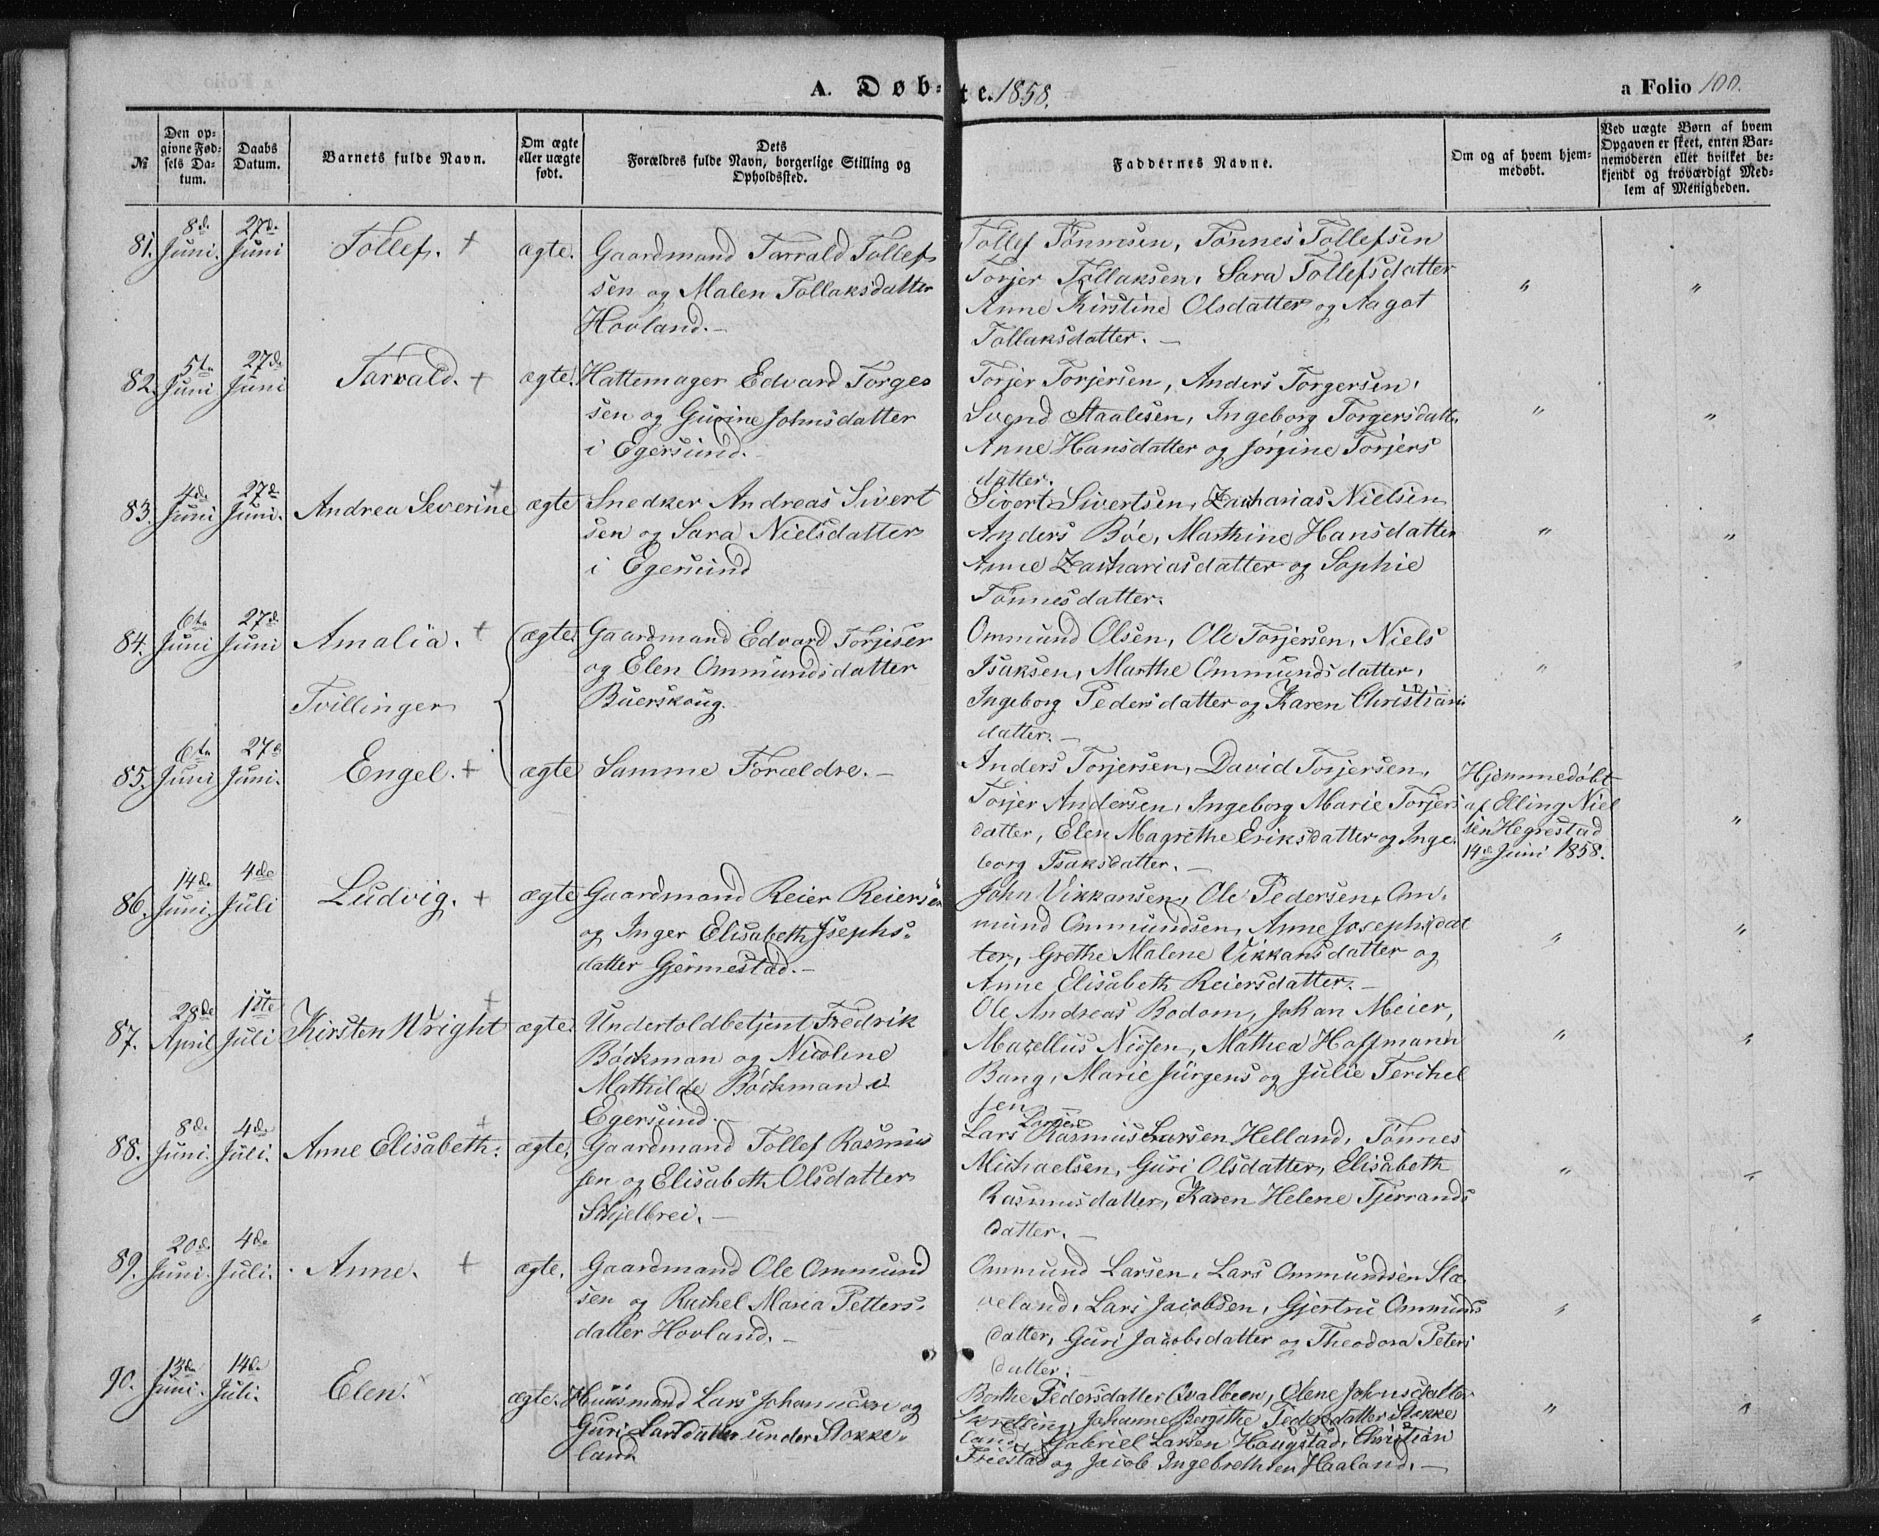 A. Døb=te. 1858.
a Folio 100.
№
Den op-
givne Fød-
sels Da-
tum.
Daabs
Datum.
Barnets fulde Navn.
Om ægte
eller uægte
født.
Dets
Forældres fulde Navn, borgerlige Stilling og
Opholdssted.
Faddernes Navne.
Om og af hvem hjem-
medøbt.
Ved uægte Børn af hvem
Opgaven er skeet, enten Bar-
nemoderen eller hvilket be-
kjendt og troværdigt Med-
lem af Menigheden.
81. 8de Juni. 27de Juni Tollef. + ægte. Gaardmand Tarrald Tollef
sen og Malen Tollaksdatter
Hovland. —
Tollef Tønnesen, Tønnes Tollefsen
Torjer Tollaksen, Sara Tollefsdatter
Anne Kirstine Olsdatter og Aagot
Tollaksdatter. —
" "
82. 5te Juni 27de Juni Tarvald. + ægte. Hattemager Edvard Torges
sen og Gurine Johnsdatter
i Egersund. —
Torjer Torjersen, Anders Torgersen,
Svend Staalesen, Ingeborg Torgersdatte
Anne Hansdatter og Jørgine Torjers
datter.
" "
83. 4de Juni 27de Juni. Andrea Severine + ægte Snedker Andreas Sivert
sen og Sara Nielsdatter
i Egersund
Sivert Sivertsen, Zacharias Nielsen
Anders Bøe, Marthine Hansdatter
Anne Zachariasdatter og Sophie
Tønnesdatter.
" "
84. 6te Juni 27de Juni Amalia. + ægte. Gaardmand Edvard Torjiser
og Elen Ommundsdatter
Buerskoug
Tvillinger
Ommund Olsen, Ole Torjersen, Niels
Isaksen, Marthe Ommundsdatter,
Ingeborg Pedersdatter og Karen Christians
datter. —
" "
85. 6te Juni 27de Juni. Engel. + ægte Samme Forældre. —
Anders Torjersen, David Torjersen,
Torjer Andersen, Ingeborg Marie Torjers
datter, Elen Magrethe Eriksdatter og Inge-
borg Isaksdatter. —
Hjemmedøbt
af Elling Niel
sen Hegrestad
14de Juni 1858.
"
86. 14de Juni. 4de Juli Ludvig. + ægte Gaardmand Reier Reiersen
og Inger Elisabeth Jsephs-
datter Gjermestad. —
John Vikkansen, Ole Pedersen, Om-
mund Ommundsen, Anne Josephsdat
ter, Grethe Malene Vikkansdatter og
Anne Elisabeth Reiersdatter. —
" "
87. 28de April 1ste Juli Kirsten Wright + ægte. Undertoldbetjent Fredrik
Böckman og Nicoline
Mathilde Böckman i
Egersund. —
Ole Andreas Bodom, Johan Meier,
Marcellus Nissen, Mathea Hoffmann
Bang, Marie Jürgens og Julie Terchel
sen —
" "
88. 8de Juni. 4de Juli. Anne Elisabeth. + ægte. Gaardmand Tollef Rasmus
sen og Elisabeth Olsdatter
Skjelbrei. —
Lars Rasmus Larsen Helland, Tønnes
Michaelsen, Guri Olsdatter, Elisabeth
Rasmusdatter, Karen Helene Tjerrands
datter. —
" "
89. 20de Juni. 4de Juli. Anne. + ægte. Gaardmand Ole Ommund
sen og Rachel Maria Petters-
datter Hovland. —
Ommund Larsen, Lars Ommundsen Slæ-
veland, Lars Jacobsen, Gjertru Ommunds
datter, Guri Jacobsdatter og Theodora Peters
datter.
" "
90. Juni. 14de Juli. Elen. ægte. Huusmand Lars Johannesen og
Guri Larsdatter under Stokke-
land
Berthe Pedersdatter Qvalbeen, Elene Johnsdatter
Skretting, Johanne Bergithe Pedersdatter Stokke
land, Gabriel Larsen Haugstad, Christian
Friestad og Jacob Ingebrethsen Haaland. —
" "